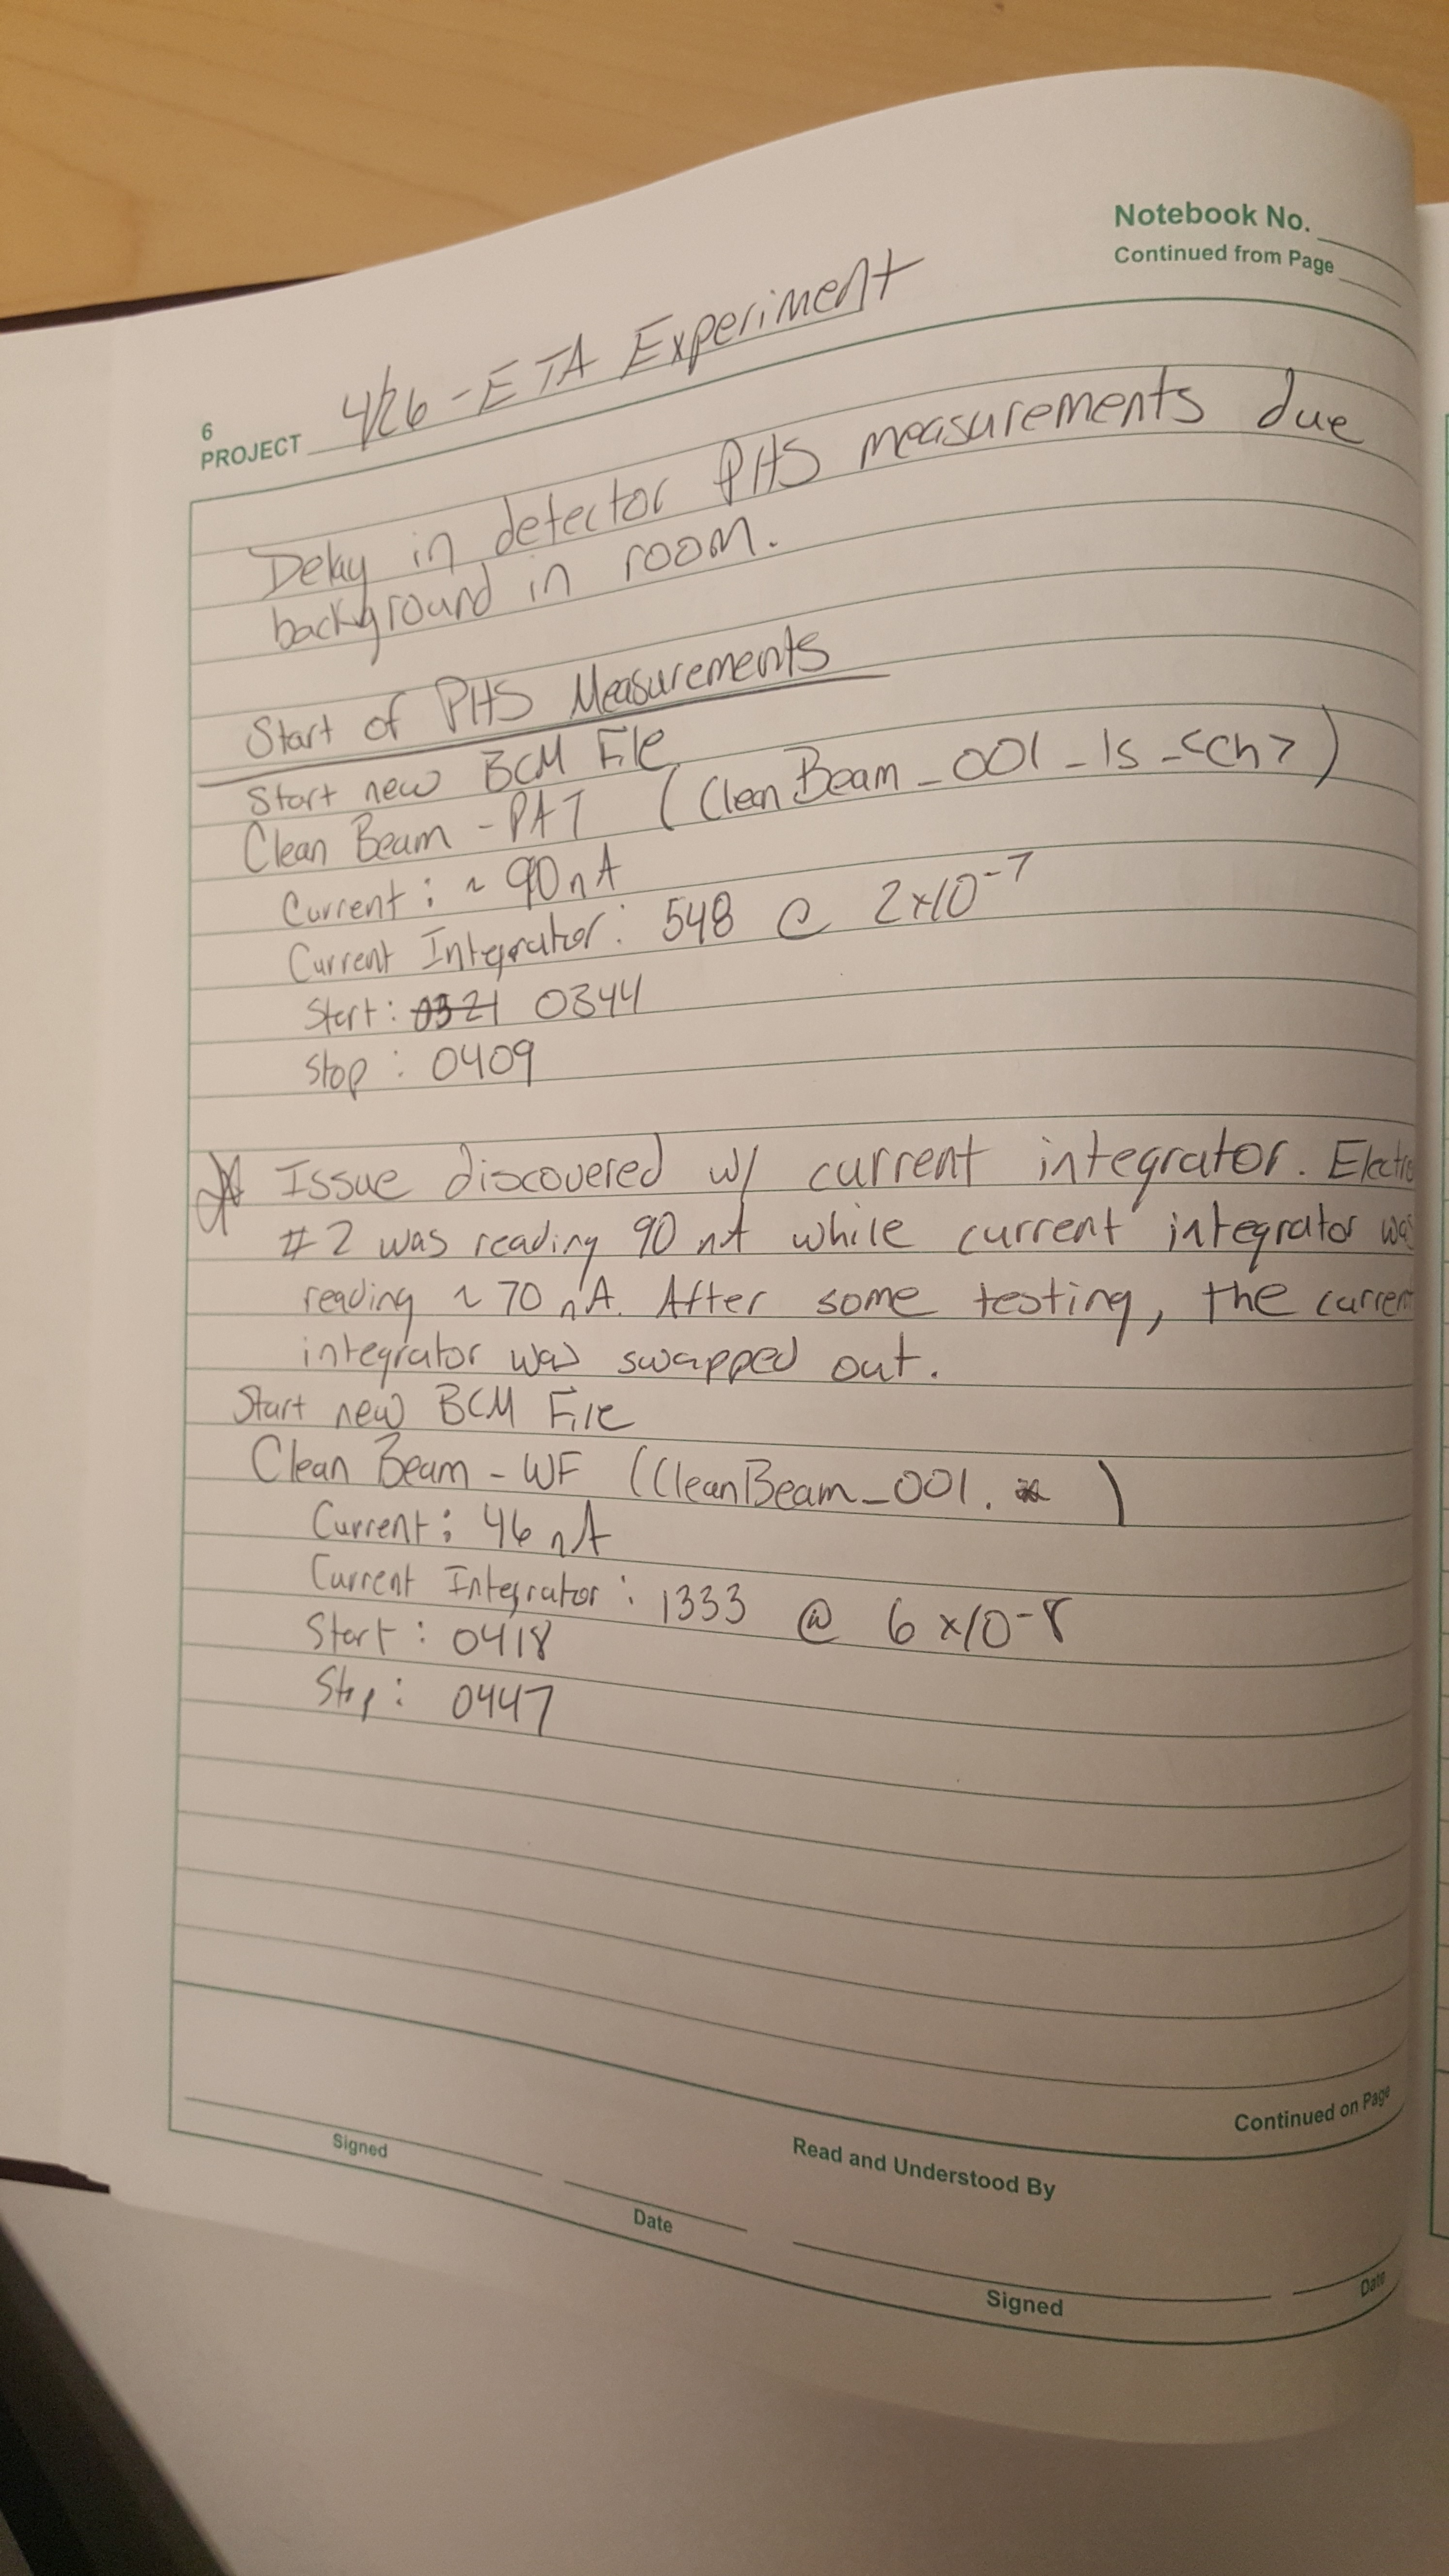 Notebook No.
Continued from Page
6
PROJECT 4/26 - ETA Experiment
Delay in detector PHS measurements due
background in room.
Start of PHS Measurements
Start new BCM File
Clean Beam - PAT (CleanBeam_001_ls_<ch>)
Current: ~ 90 nA
Current Integrator: 548 @ 2x10^-7
Start: 0321 0344
Stop: 0409
* Issue discovered w/ current integrator. Electro
#2 was reading 90 nA while current integrator was
reading ~ 70 nA. After some testing, the current
integrator was swapped out.
Start new BCM File
Clean Beam - WF (CleanBeam_001.*)
Current: 46 nA
Current Integrator: 1333 @ 6x10^-8
Start: 0418
Stop: 0447
Continued on Page
Signed
Date
Read and Understood By
Signed
Date